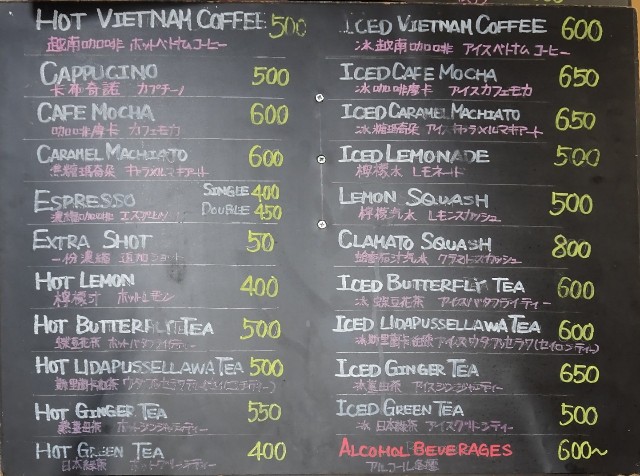 HOT VIETNAM COFFEE 500
越南咖啡 ホットベトナムコーヒー
CAPPUCINO 500
卡布奇諾 カプチーノ
CAFE MOCHA 600
咖啡摩卡 カフェモカ
CARAMEL MACHIATO 600
焦糖瑪奇朵 キャラメルマキアート
ESPRESSO SINGLE 400
DOUBLE 450
濃縮咖啡 エスプレッソ
EXTRA SHOT 50
一份濃縮 追加ショット
HOT LEMON 400
檸檬汁 ホットレモン
HOT BUTTERFLY TEA 500
蝶豆花茶 ホットバタフライティー
HOT UDAPUSSELLAWA TEA 500
斯里蘭卡紅茶
HOT GINGER TEA 550
熱薑母茶 ホットジンジャーティー
HOT GREEN TEA 400
日本緑茶 ホットグリーンティー
ICED VIETNAM COFFEE 600
冰 越南咖啡 アイスベトナムコーヒー
ICED CAFE MOCHA 650
冰咖啡摩卡 アイスカフェモカ
ICED CARAMEL MACHIATO 650
冰 焦糖瑪奇朵 アイスキャラメルマキアート
ICED LEMONADE 500
檸檬水 レモネード
LEMON SQUASH 500
檸檬汽水 レモンスカッシュ
CLAMATO SQUASH 800
汽水 クラマトスカッシュ
ICED BUTTERFLY TEA 600
冰 蝶豆花茶 アイスバタフライティー
ICED UDAPUSSELLAWA TEA 600
冰斯里蘭卡紅茶 アイスウダプッセラワ(セイロンティー)
ICED GINGER TEA 650
冰薑母茶 アイスジンジャーティー
ICED GREEN TEA 500
冰 日本緑茶 アイスグリーンティー
ALCOHOL BEVERAGES 600~
アルコール各種